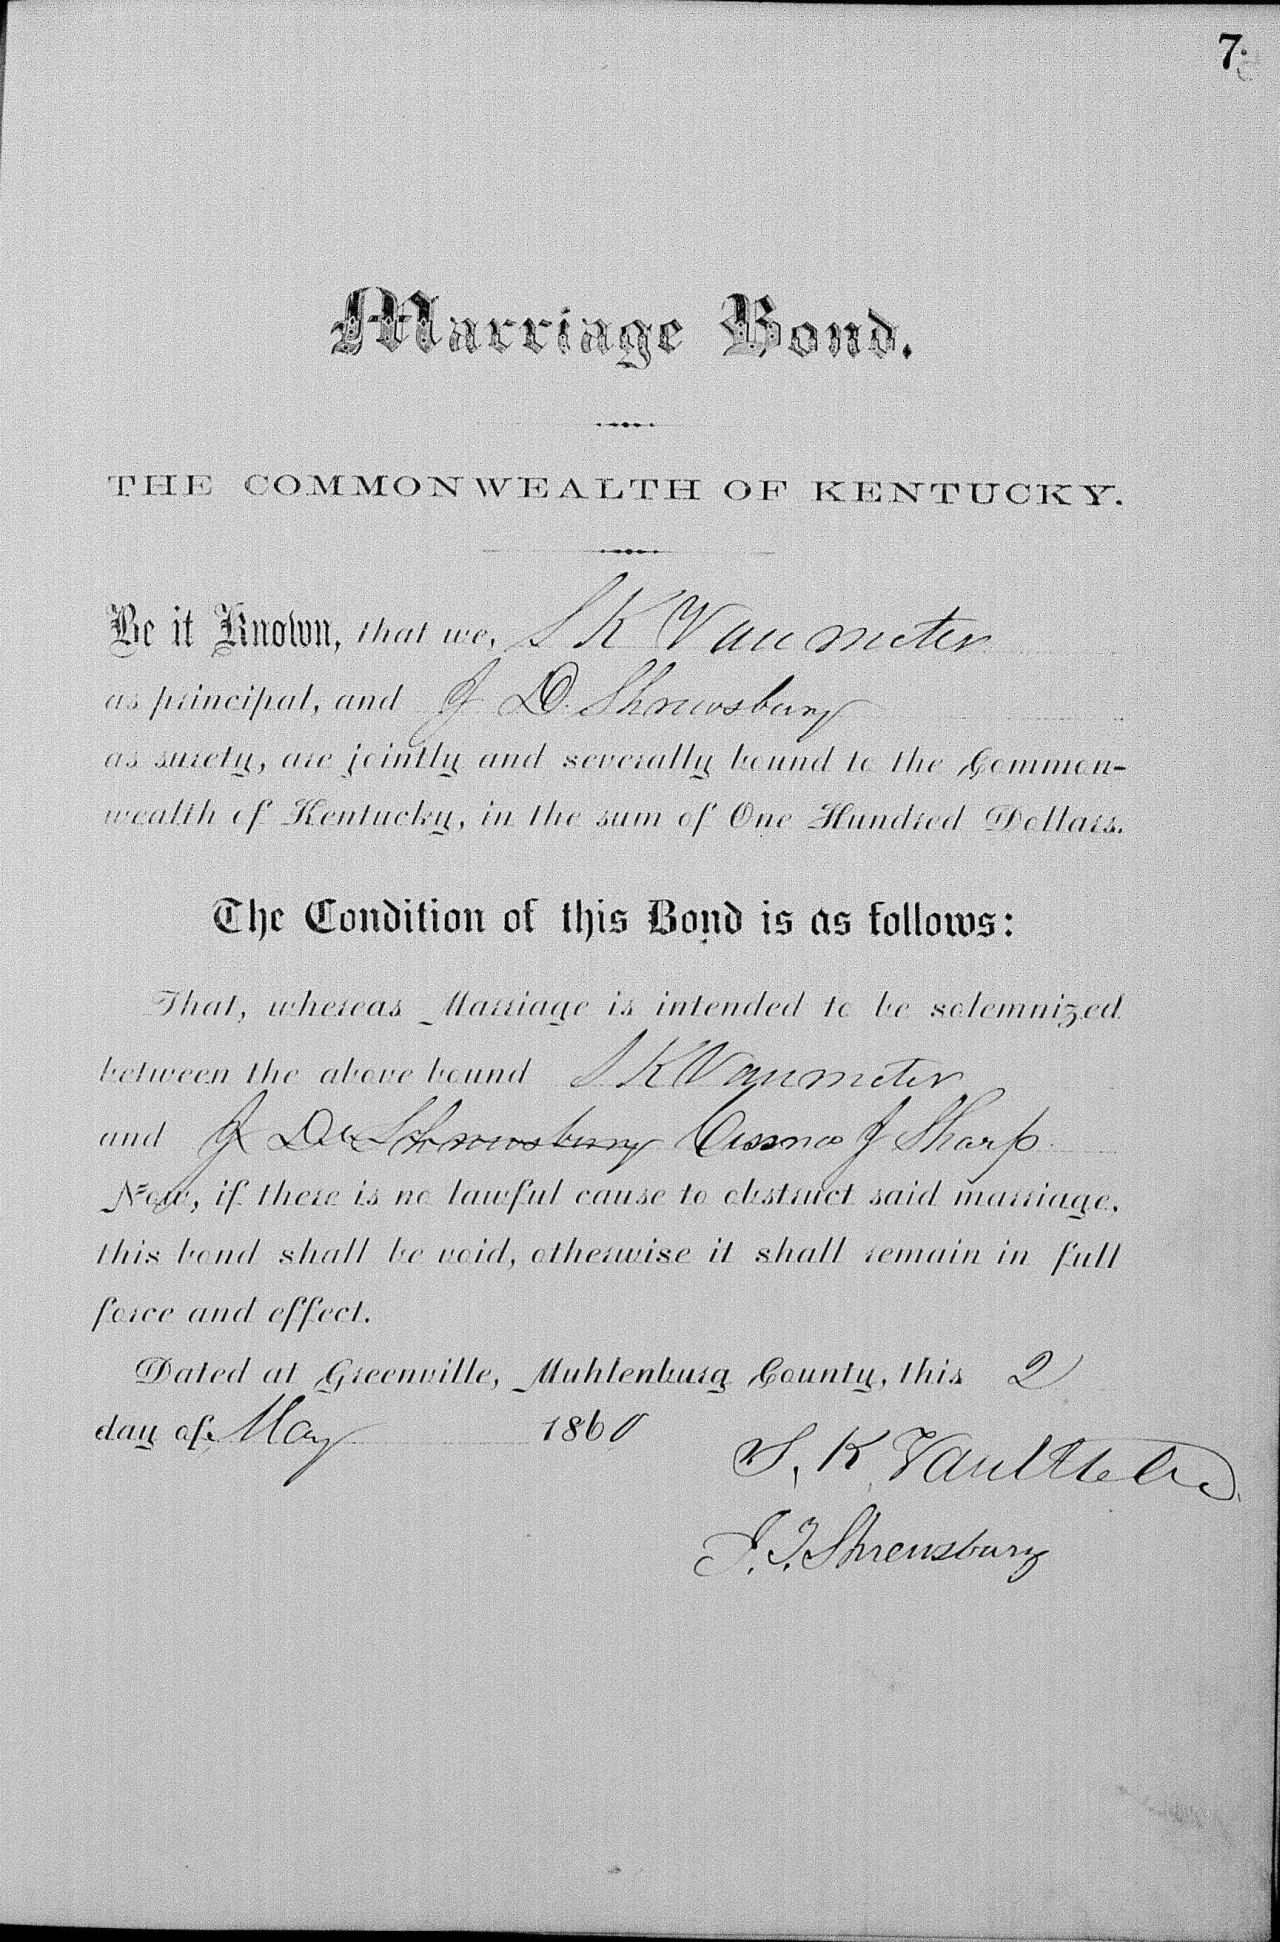 7.
Marriage Bond.
THE COMMONWEALTH OF KENTUCKY.
Be it Known, that we, S K Vanmeter
as principal, and J D. Shrewsbury
as surety, are jointly and severally bound to the Common-
wealth of Kentucky, in the sum of One Hundred Dollars.
The Condition of this Bond is as follows:
That, whereas Marriage is intended to be solemnized
between the above bound S. K Vanmeter
and J D Shrewsbury J Sharp
Now, if there is no lawful cause to obstruct said marriage,
this bond shall be void, otherwise it shall remain in full
force and effect.
Dated at Greenville, Muhlenburg County, this 2
day of May 1860
S. K. VanMeter
Shrewsbury